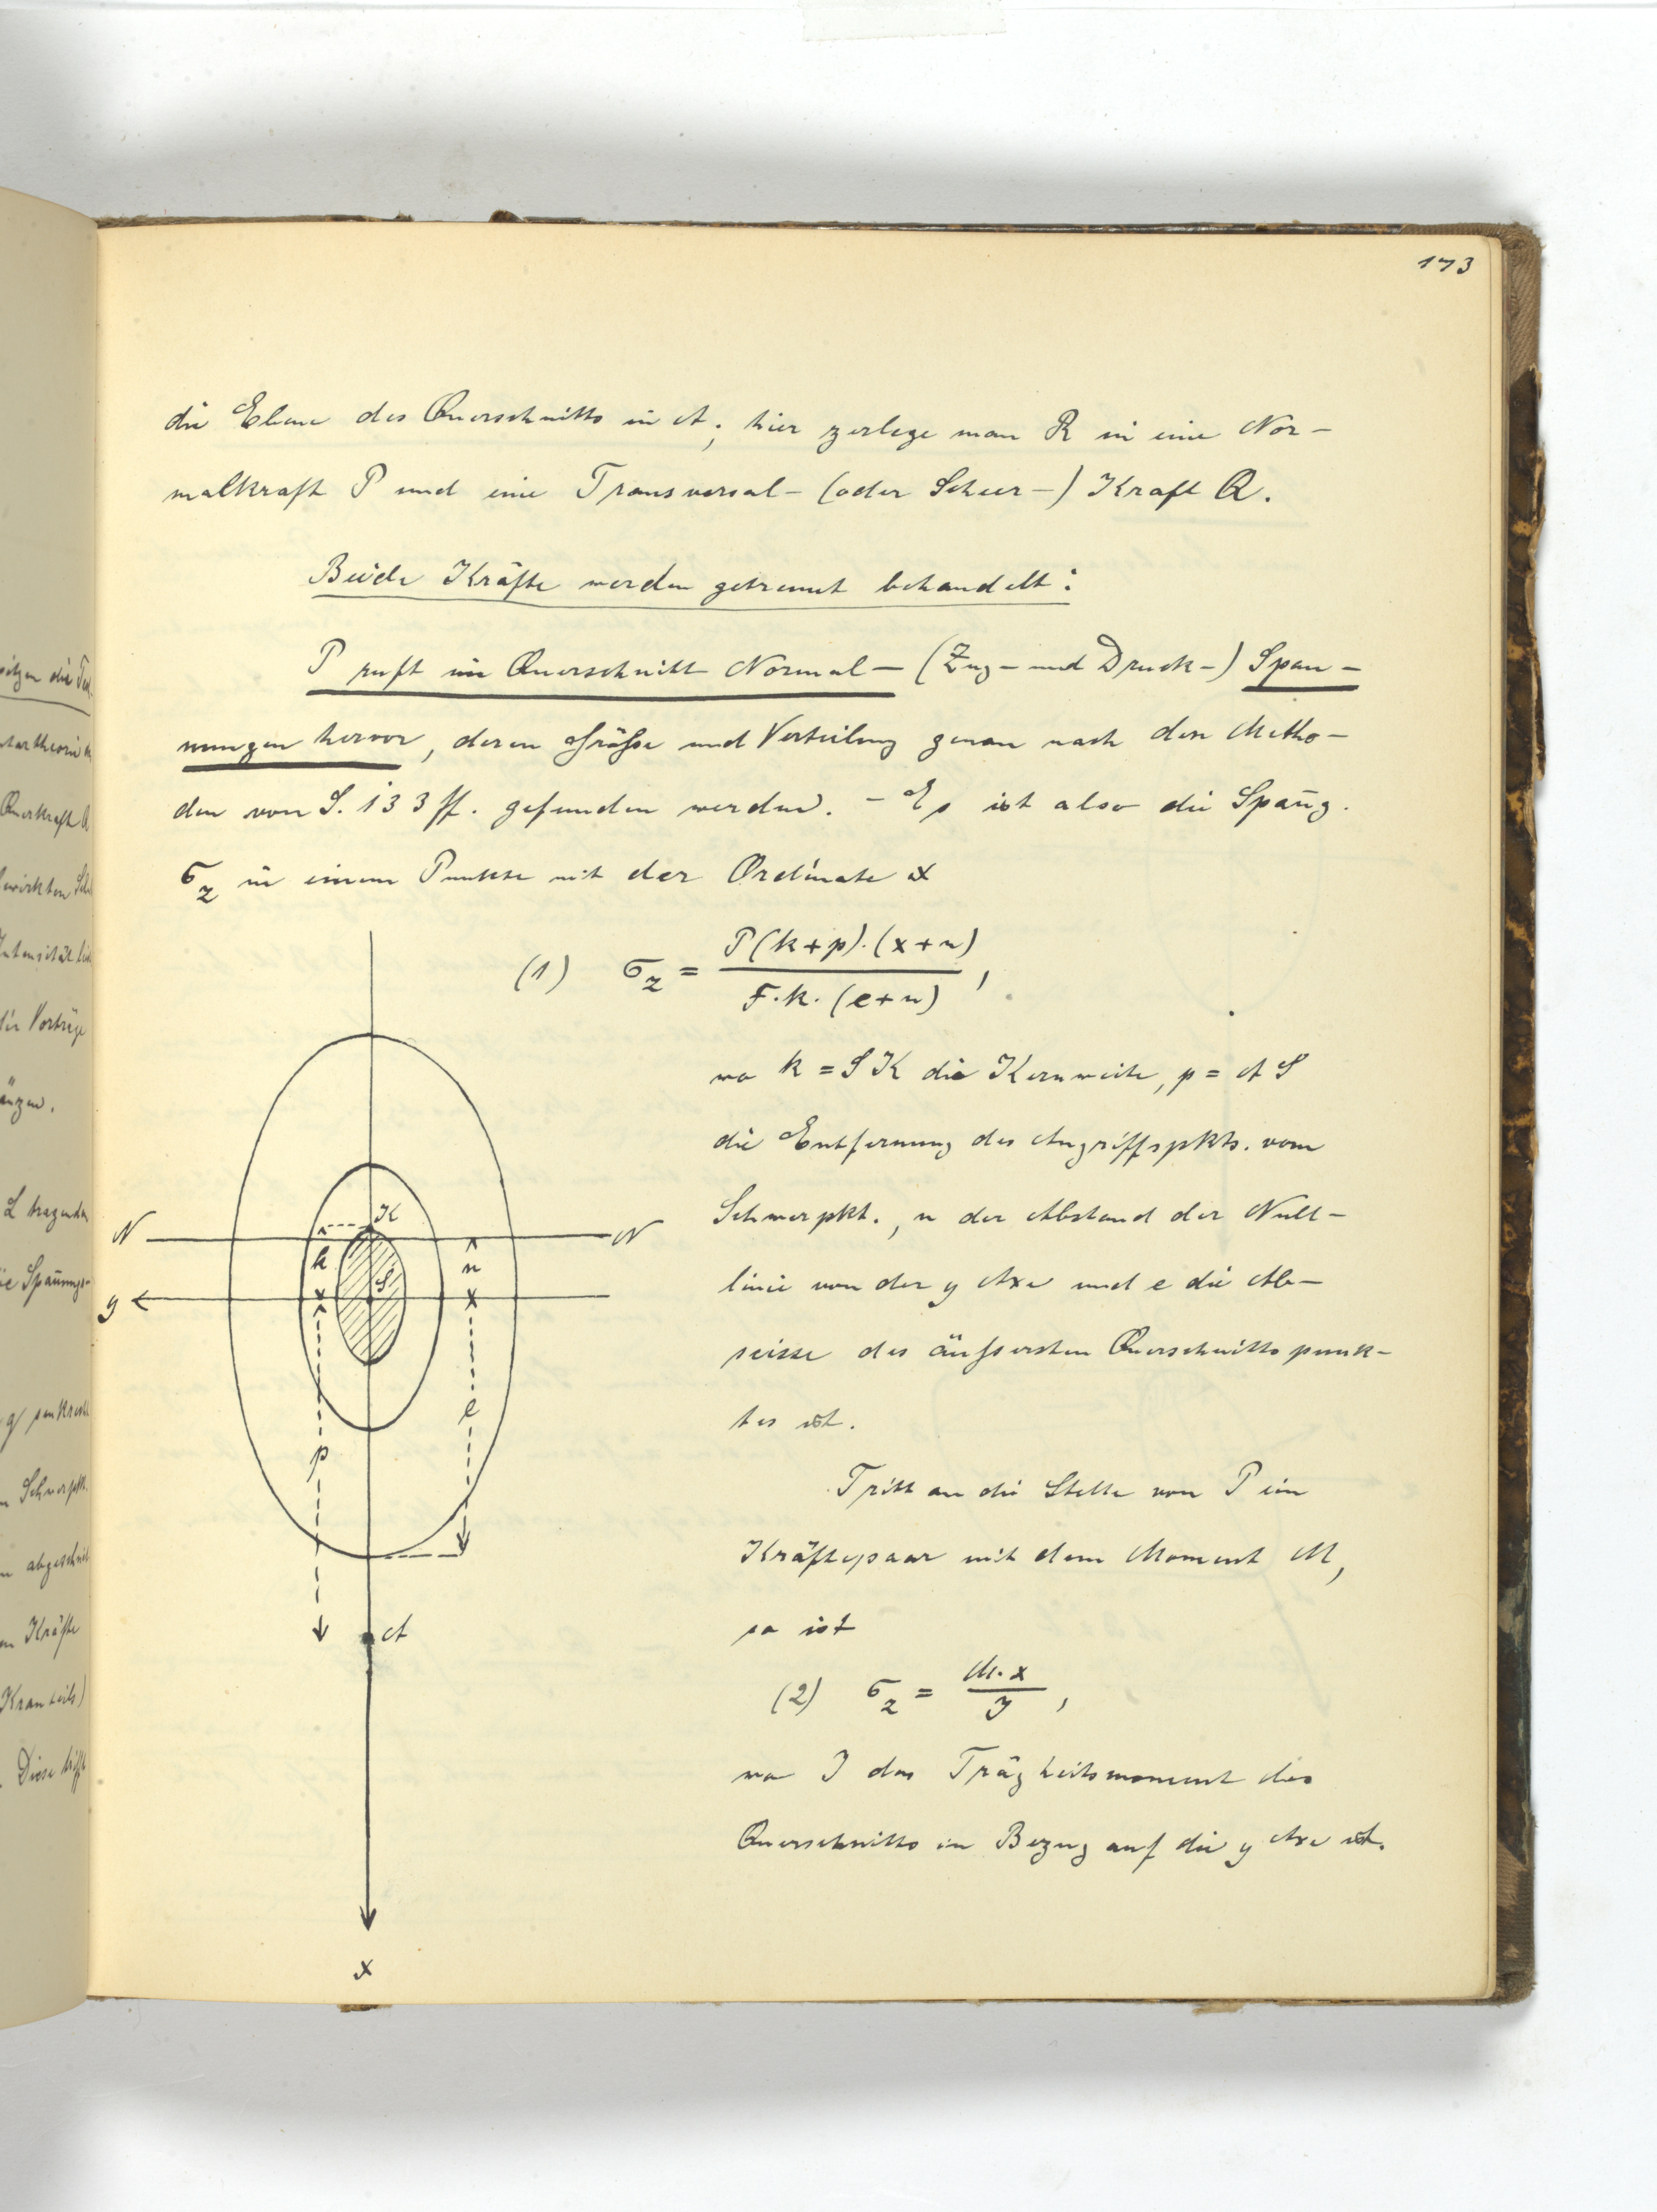 173
die Ebene des Querschnitts in A; hier zerlege man R in eine Nor-
malkraft P und eine Transversal- (oder Scheer-) Kraft Q.
Beide Kräfte werden getrennt behandelt:
P ruft im Querschnitt Normal- (Zug- und Druck-) Span-
nungen hervor, deren Größe und Verteilung genau nach den Metho-
den von S. 133 ff. gefunden werden. - Es ist also die Span̄g.
σz in einem Punkte mit der Ordinate x
(1) σz = P(k+p).(x+n) / F.k.(e+n),
wo k = SK die Kernweite, p = AS
die Entfernung des Angriffspkts. vom
Schwerpkt., n der Abstand der Null-
linie von der y Axe und e die Ab-
scisse des äußersten Querschnittspunk-
tes ist.
Tritt an die Stelle von P ein
Kräftepaar mit dem Moment M,
so ist
(2) σz = M.x / J,
wo J das Trägheitsmoment des
Querschnitts in Bezug auf die y Axe ist.
K
N
N
k
n
S
y
e
p
A
x